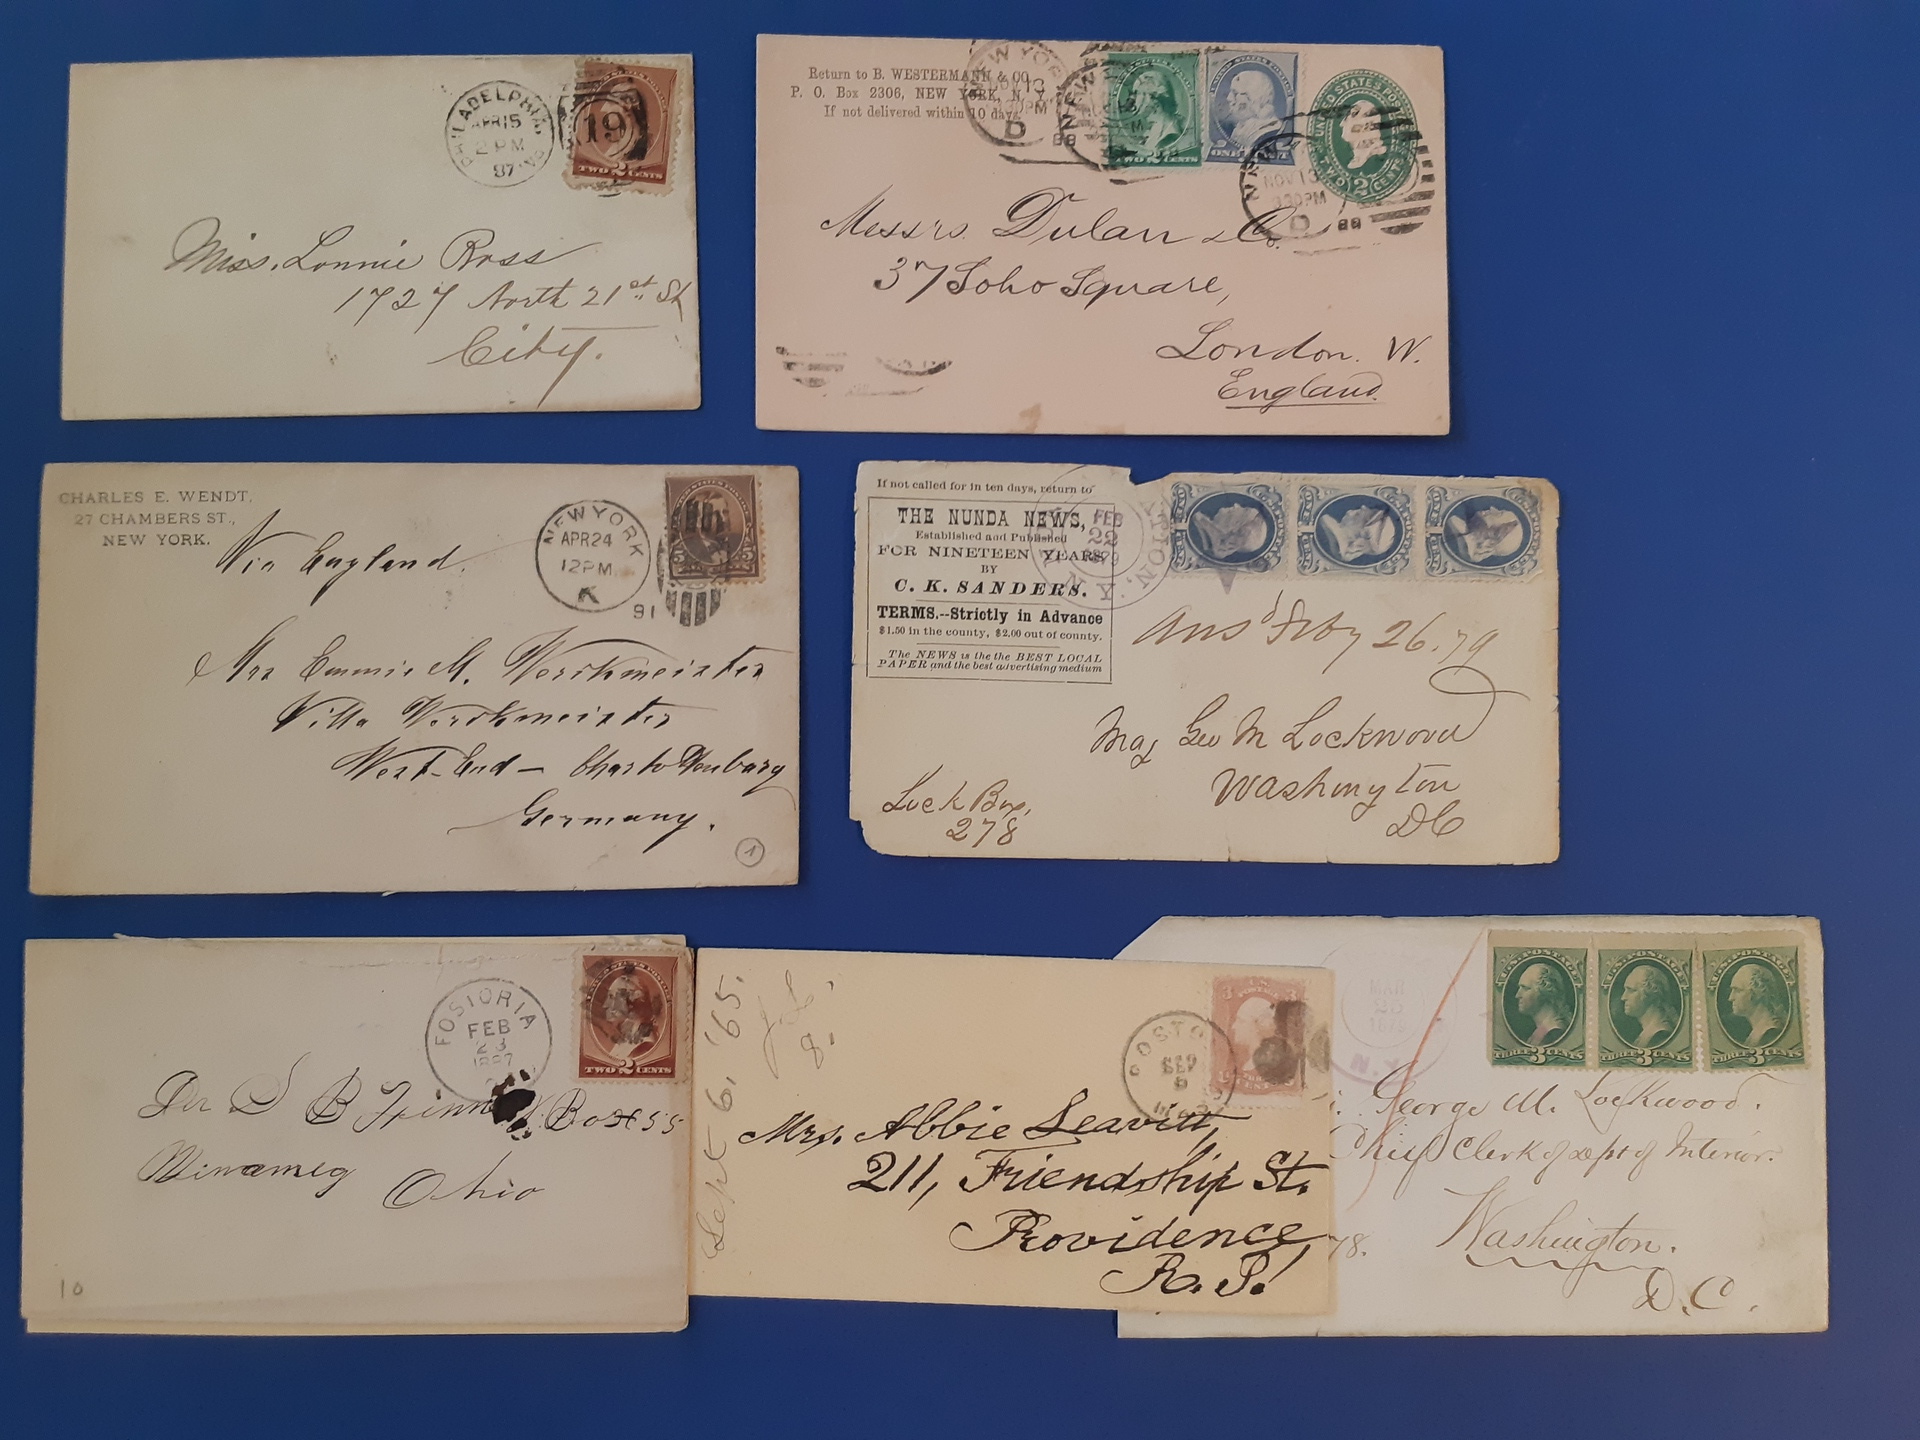 PHILADELPHIA, PA.
APR 15
2 PM
87
19
TWO 2 CENTS
Miss. Lonnie Ross
1727 North 21st St
City.
Return to B. WESTERMANN & CO
P. O. Box 2306, NEW YORK, N. Y.
If not delivered within 10 days.
NEW YORK
D
88
TWO 2 CENTS
UNITED STATES POSTAGE
TWO 2 CENTS
NOV 13
330PM
D
88
Messrs. Dulau & Co.
37 Soho Square,
London. W.
England.
CHARLES E. WENDT,
27 CHAMBERS ST.,
NEW YORK.
Via England.
NEW YORK
APR 24
12PM
K
91
Mrs Emmie M. Werckmeister
Villa Werckmeister
West-End - Charlottenburg
Germany.
1
If not called for in ten days, return to
THE NUNDA NEWS,
Established and Published
FOR NINETEEN YEARS
BY
C. K. SANDERS.
TERMS.--Strictly in Advance
$1.50 in the county, $2.00 out of county.
The NEWS is the the BEST LOCAL
PAPER and the best advertising medium
FEB
22
1879
Ans'd Feby 26.79
Maj Geo M Lockwood
Washington
DC
Lock Box,
278
FOSTORIA
FEB
23
1887
TWO 2 CENTS
Box 55
Ohio
10
Sept 6, '65.
8.
BOSTON
SEP
6
Mrs. Abbie Leavitt,
211, Friendship St.
Providence
R. I.
MAR
1879
N.Y.
U.S. POSTAGE
THREE 3 CENTS
U.S. POSTAGE
THREE 3 CENTS
U.S. POSTAGE
THREE 3 CENTS
George M. Lockwood.
Chief Clerk of Dept of Interior.
78.
Washington.
D.C.